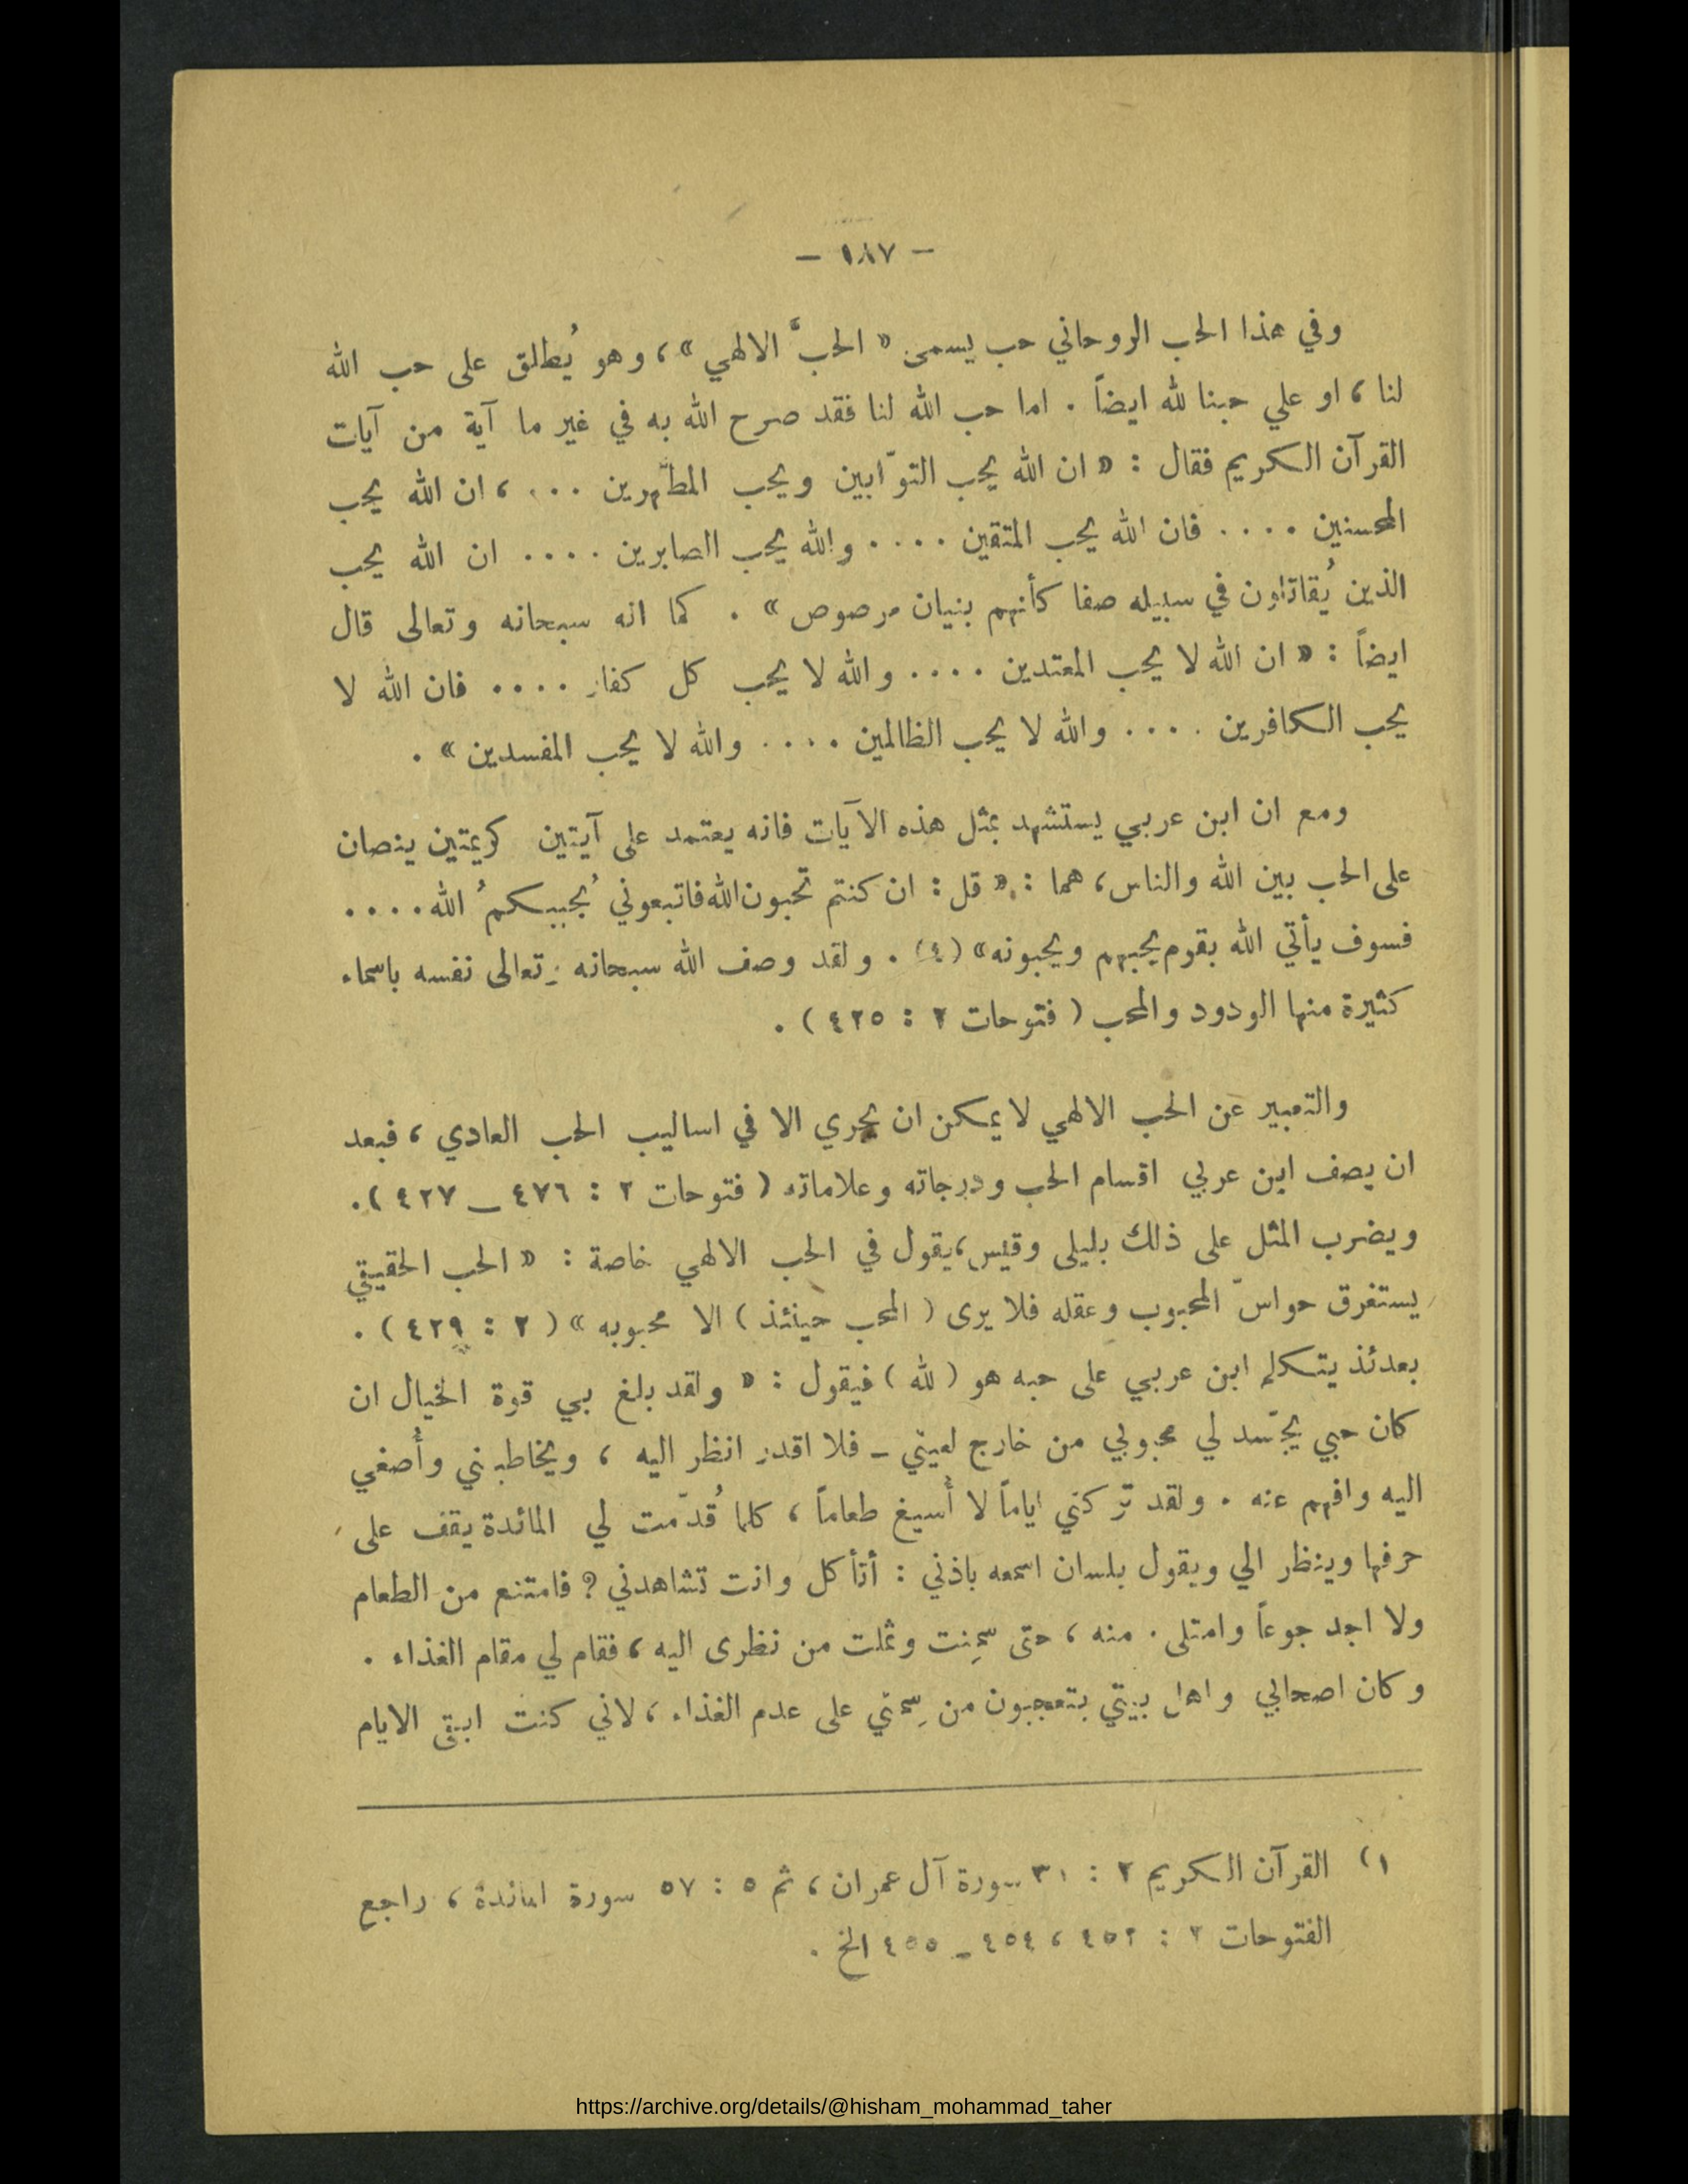 — ١٨٧ —
وفي هذا الحب الروحاني حب يسمى « الحبَّ الالهي »، وهو يُطلق على حب الله
لنا، او علي حبنا لله ايضاً . اما حب الله لنا فقد صرح الله به في غير ما آية من آيات
القرآن الكريم فقال : « ان الله يحب التوّابين ويحب المطهّرين ...، ان الله يحب
المحسنين .... فان الله يحب المتقين .... والله يحب الصابرين .... ان الله يحب
الذين يُقاتاون في سبيله صفا كأنهم بنيان مرصوص » . كما انه سبحانه وتعالى قال
ايضاً : « ان الله لا يحب المعتدين .... والله لا يحب كل كفار .... فان الله لا
يحب الكافرين .... والله لا يحب الظالمين .... والله لا يحب المفسدين » .
ومع ان ابن عربي يستشهد بمثل هذه الآيات فانه يعتمد على آيتين كريمتين ينصان
على الحب بين الله والناس، هما : « قل : ان كنتم تحبون الله فاتبعوني يُحببكمُ الله ....
فسوف يأتي الله بقوم يحبهم ويحبونه» (٤) . ولقد وصف الله سبحانه وتعالى نفسه باسماء
كثيرة منها الودود والمحب ( فتوحات ٢ : ٤٢٥ ) .
والتعبير عن الحب الالهي لا يمكن ان يجري الا في اساليب الحب العادي، فبعد
ان يصف ابن عربي اقسام الحب ودرجاته وعلاماته ( فتوحات ٢ : ٤٧٦ – ٤٢٧ ).
ويضرب المثل على ذلك بليلى وقيس، يقول في الحب الالهي خاصة : « الحب الحقيقي
يستغرق حواسّ المحبوب وعقله فلا يرى ( المحب حينئذ ) الا محبوبه » ( ٢ : ٤٢٩ ) .
بعدئذ يتكلم ابن عربي على حبه هو ( لله ) فيقول : « ولقد بلغ بي قوة الخيال ان
كان حبي يجسّد لي محبوبي من خارج لعيني – فلا اقدر انظر اليه ، ويخاطبني وأُصغي
اليه وافهم عنه . ولقد تركني اياماً لا أُسيغ طعاماً ، كلما قُدّمت لي المائدة يقف على
حرفها وينظر الي ويقول بلسان اسمعه باذني : أتأكل وانت تشاهدني ؟ فامتنع من الطعام
ولا اجد جوعاً وامتلى . منه ، حتى سمِنت وعملت من نظرى اليه ، فقام لي مقام الغذاء .
وكان اصحابي واهل بيتي يتعجبون من سِمَني على عدم الغذاء ، لاني كنت ابقى الايام
١) القرآن الكريم ٢ : ٣١ سورة آل عمران ، ثم ٥ : ٥٧ سورة المائدة ، راجع
الفتوحات ٢ : ٤٥٢ ، ٤٥٤ – ٤٥٥ الخ .
https://archive.org/details/@hisham_mohammad_taher